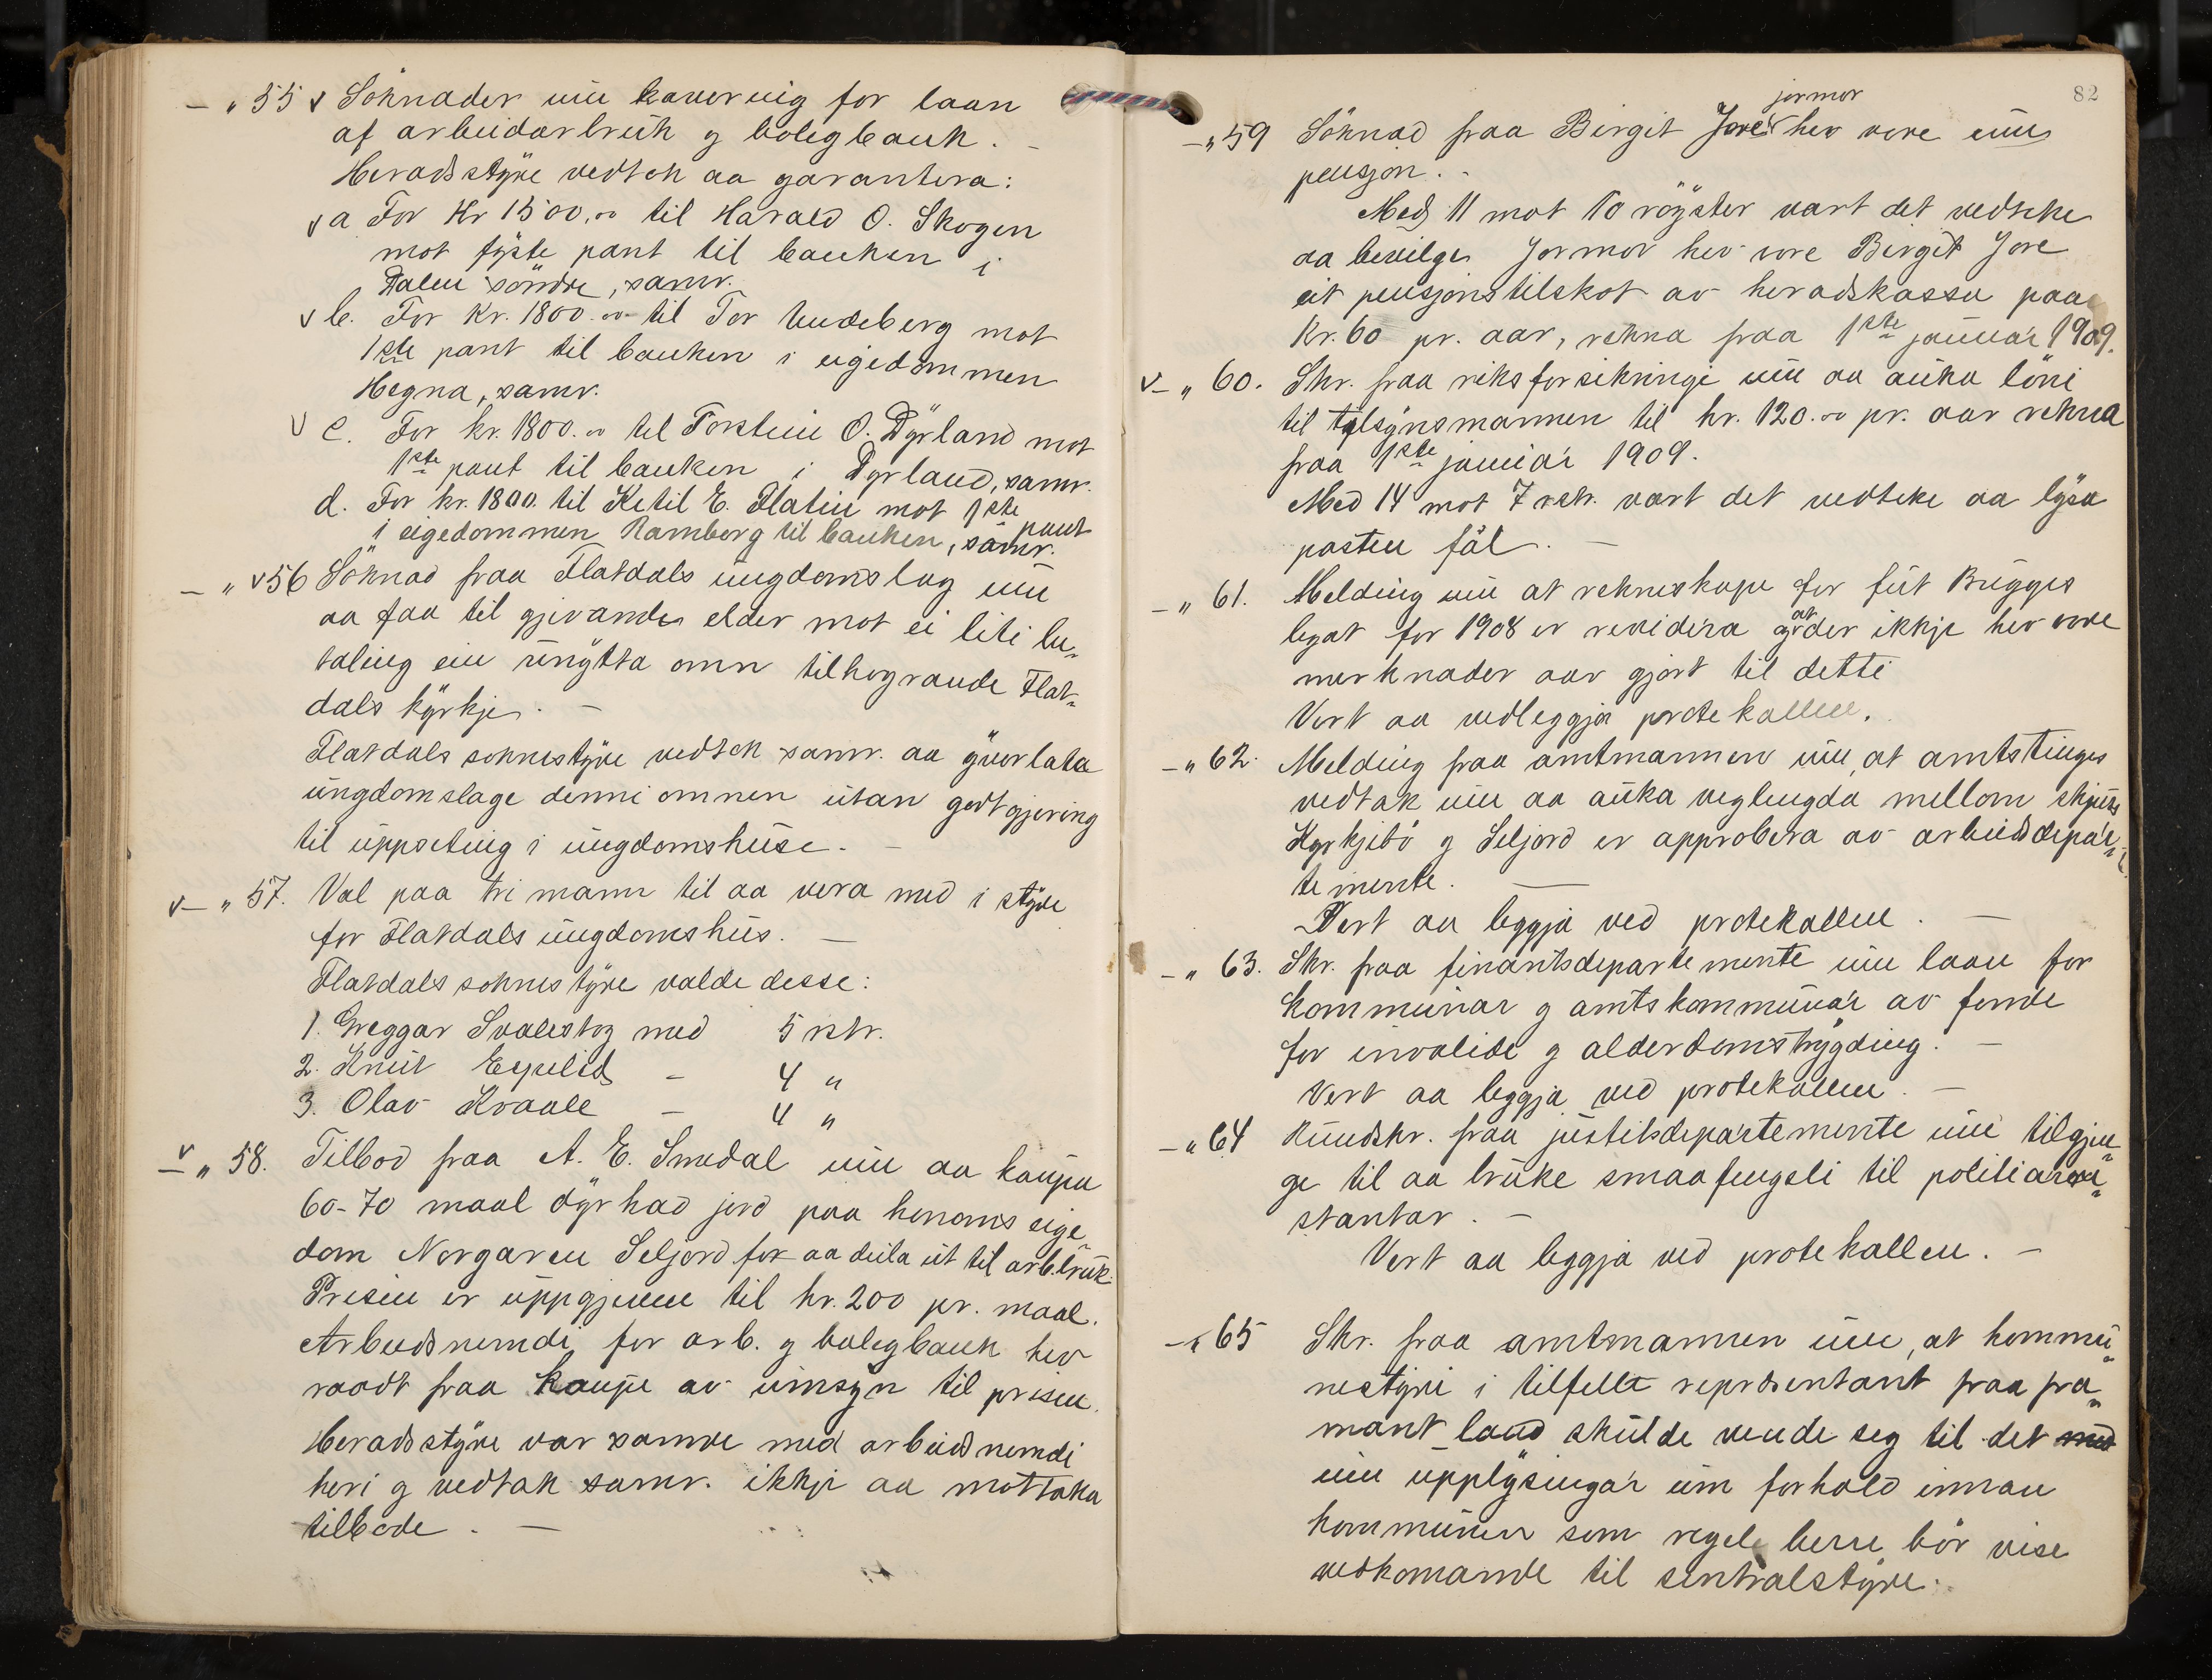 — „ 55 v Söknader um kavering for laan
af arbeidarbruk g boligbank. –
Heradsstyre vedtok aa garantera:
v a For Kr 1500,00 til Harald O. Skogen
mot fyste pant til banken i
Dalen söndre, samr.
v b. For Kr. 1800.00 til Tor Undeberg mot
1ste pant til banken i eigedommen
Hegna, samr.
v c. For kr. 1800.00 til Torstein O. Dyrland mot
1ste pant til banken i Dyrland, samr.
d. For kr. 1800. til Ketil E. Flatin mot 1ste
pant
i eigedommen Ramberg til banken, samr.
— „ v 56 Söknad fraa Flatdals ungdomslag um
aa faa til gjevande elder mot ei liti be„
taling ein unytta omn tilhøyrande Flat„
dals kyrkje. –
Flatdals soknestyre vedtok samr. aa yverlata
ungdomslage denni omnen utan godtgjering
til uppseting i ungdomshuse. –
v — „ 57. Val paa tri mann til aa vera med i styre
for Flatdals ungdomshus. —
Flatdals soknestyre valde desse:
1. Greggar Svalestog med 5 rstr.
2. Knut Espelid – 4 „
3. Olav Kvaale – 4 „
v — „ 58. Tilbod fraa A. E. Smedal um aa kaupa
60-70 maal dyrkad jord paa honoms eige„
dom Norgaren Seljord for aa deila ut til arb.bruk.
Prisen er uppgjeven til kr. 200 pr. maal.
Arbeidsnemdi for arb. g boligbank hev
raadt fraa kaupe av umsyn til prisen.
Heradsstyre var samde med arbeidsnemdi
heri g vedtok samr. ikkje aa mottaka
tilbode. —
82
jormor
— „ 59 Söknad fraa Birgit Jore v hev vore um
pensjon. -
Med 11 mot 10 röyster vart det vedteke
aa bevilge Jormor hev vore Birgit Jore
eit pensjonstilskot av heradskassa paa
Kr. 60 pr. aar, rekna fraa 1ste januar 1909.
v — „ 60. Skr. fraa riksforsikringi um aa auka löni
til tilsynsmannen til kr. 120.00 pr. aar rekna
fraa 1ste januar 1909.
Med 14 mot 7 rstr. vart det vedteke aa lysa
posten fal. —
— „ 61. Melding um at rekneskape for fut Brügges
legat for 1908 er revidera g at der ikkje hev vore
merknader aar gjort til detti
Vert aa vedleggja protekollen.
— „ 62. Melding fraa amtmannen um, at amtstinges
vedtak um aa auka veglengda mellom skjuss
Kyrkjebö g Seljord er approbera av arbeidsdepar„
temente. —
Vert aa leggja ved protekollen. —
— „ 63. Skr. fraa finantsdepartemente um laan for
kommunar g amtskommunar av fonde
for invalide g alderdomstrygding. –
Vert aa leggja ved protekollen. –
— „ 64 Rundskr. fraa justitsdepartemente um tilgjen„
ge til aa bruke smaafengsli til politiarre„
stantar. –
Vert aa leggja ved protekollen. –
— „ 65 Skr. fraa amtmannen um, at kommu„
nestyri i tilfelle representant fraa fra„
mant land skulde vende seg til det med
um upplysingar um forhold innan
kommunen som regel berre bör vise
vedkomande til sentralstyre.